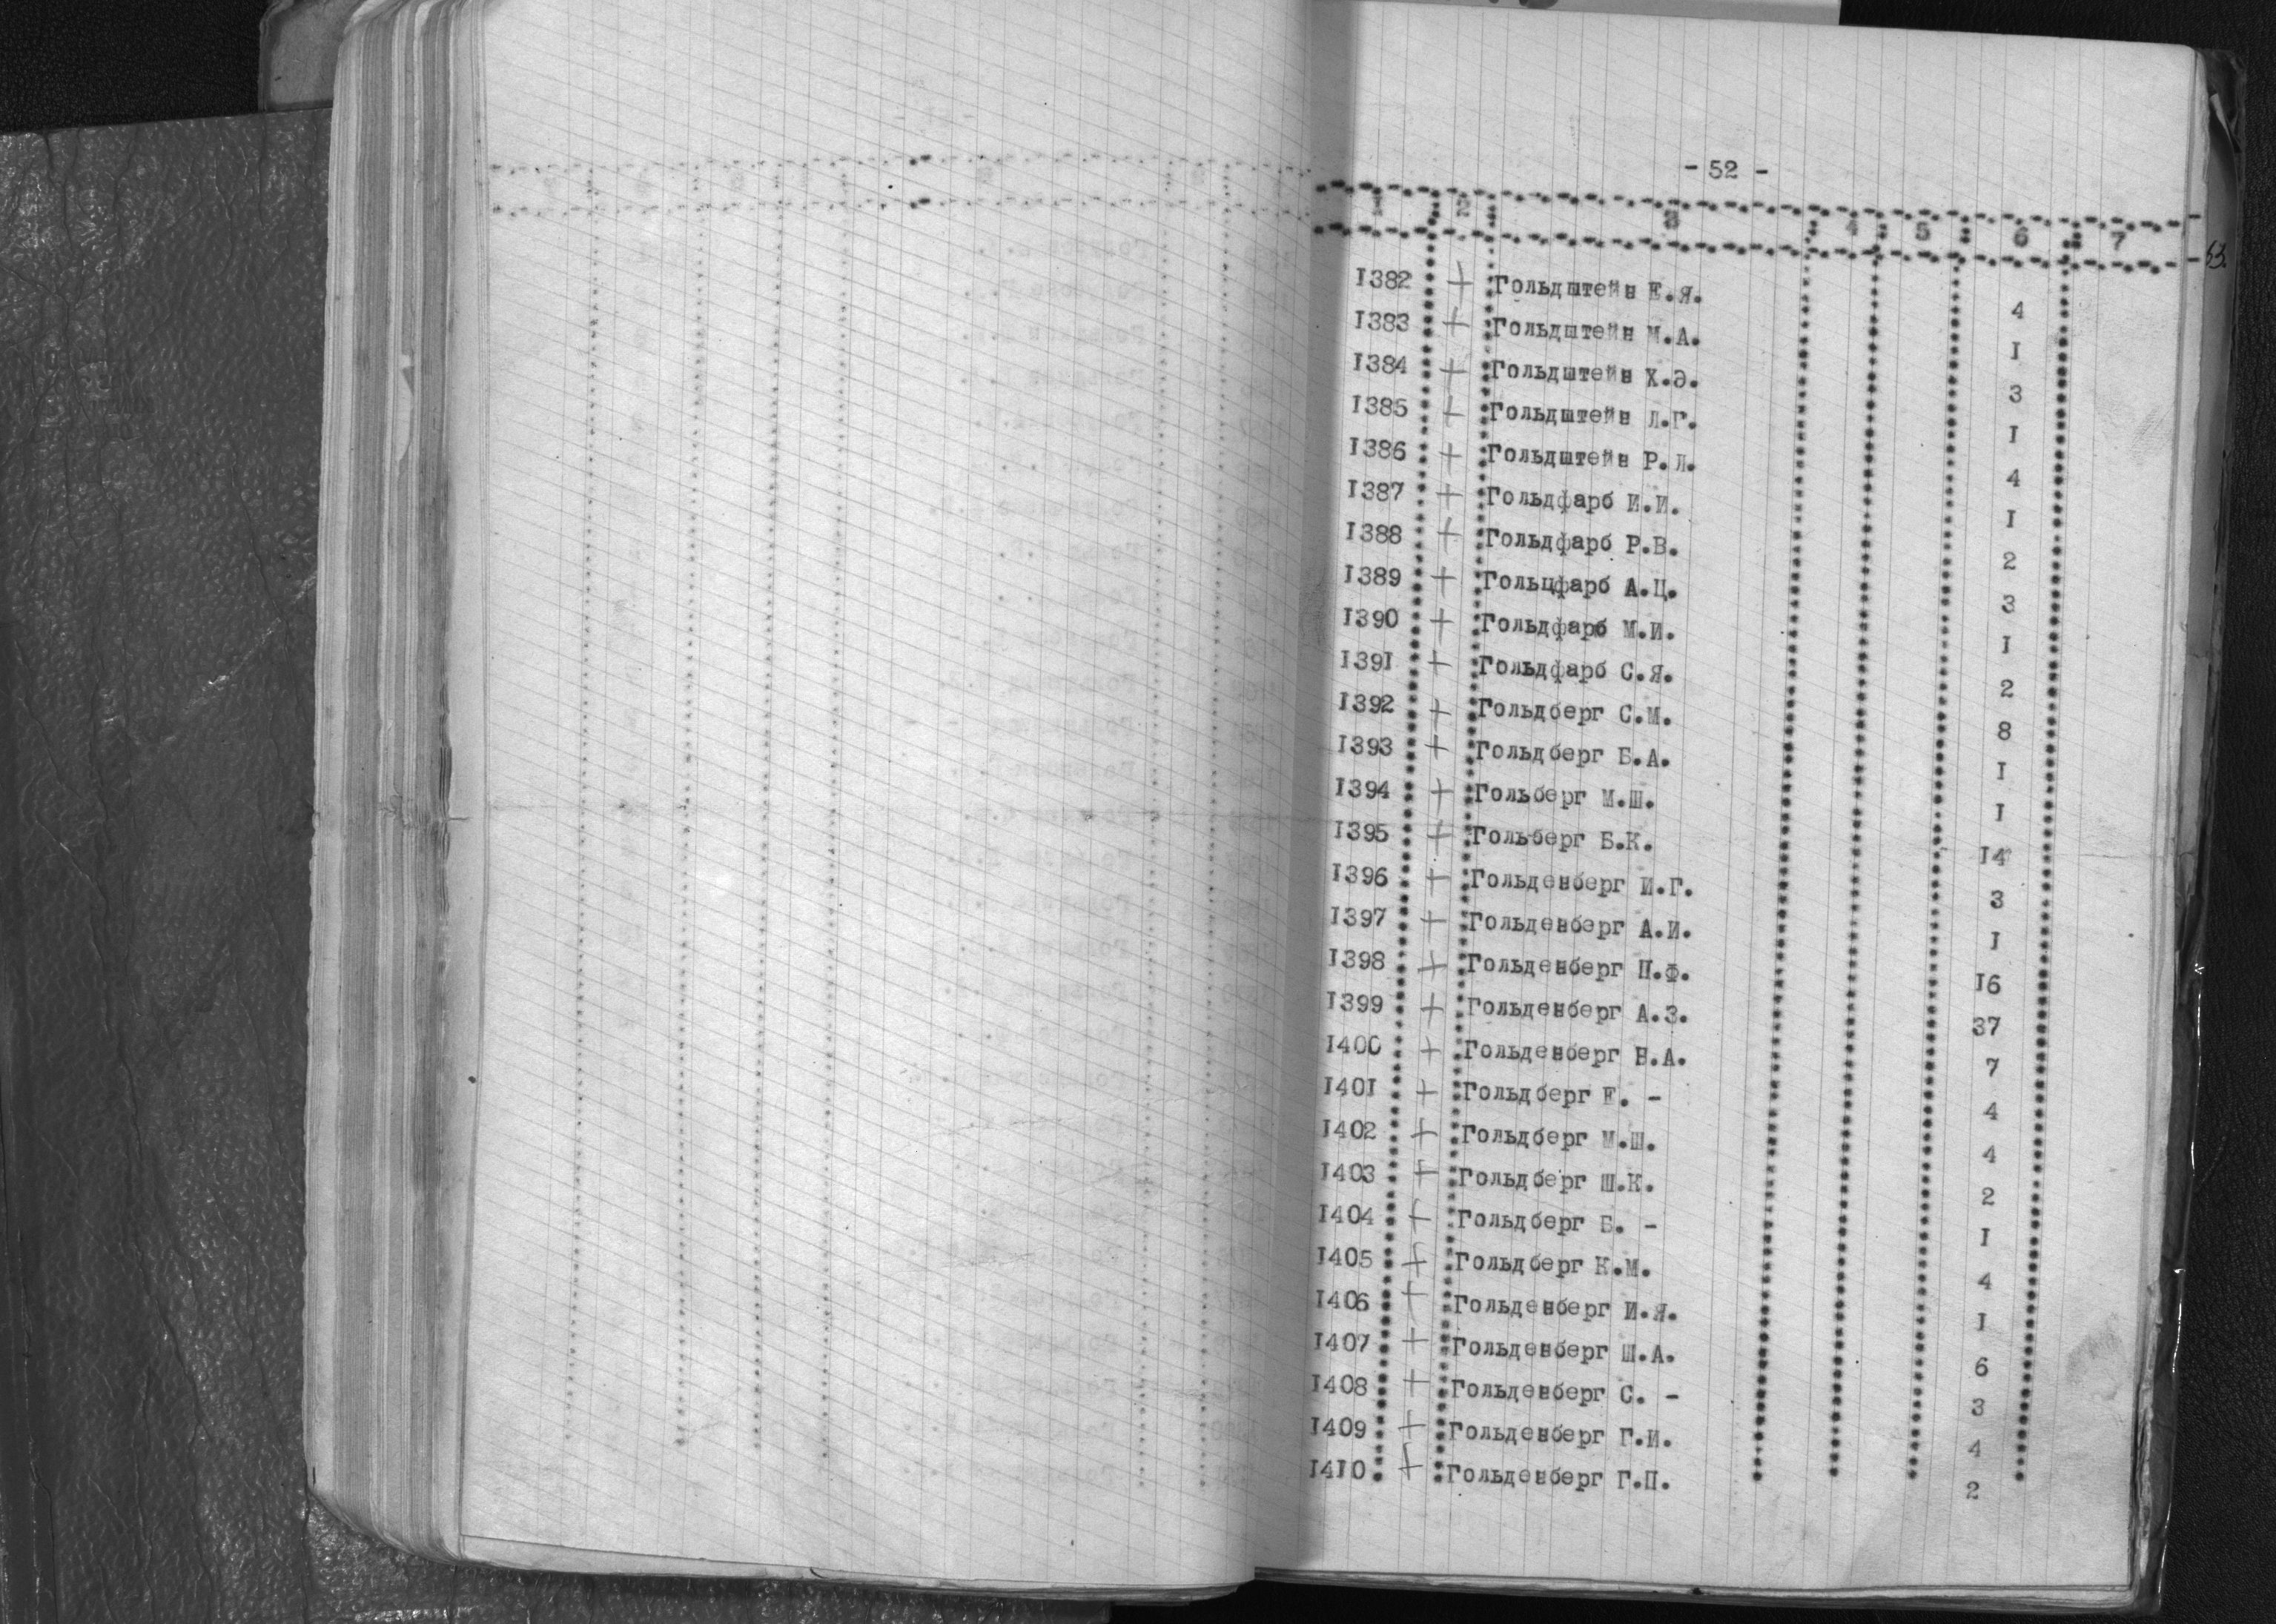 - 52 -
1 2 3 4 5 6 7
53.
I382 + Гольдштейн Е.Я. 4
I383 + Гольдштейн М.А. I
I384 + Гольдштейн Х.Э. 3
I385 + Гольдштейн Л.Г. I
I386 + Гольдштейн Р.Л. 4
I387 + Гольдфарб И.И. I
I388 + Гольдфарб Р.В. 2
I389 + Гольцфарб А.Ц. 3
I390 + Гольдфарб М.И. I
I391 + Гольдфарб С.Я. 2
I392 + Гольдберг С.М. 8
I393 + Гольдберг Б.А. I
I394 + Гольберг М.Ш. I
I395 + Гольберг Б.К. I4
I396 + Гольденберг И.Г. 3
I397 + Гольденберг А.И. I
I398 + Гольденберг П.Ф. I6
I399 + Гольденберг А.З. 37
I400 + Гольденберг Н.А. 7
I40I + Гольдберг Е. - 4
I402 + Гольдберг М.Ш. 4
I403 + Гольдберг Ш.К. 2
I404 + Гольдберг Б. - I
I405 + Гольдберг К.М. 4
I406 + Гольденберг И.Я. I
I407 + Гольденберг Ш.А. 6
I408 + Гольденберг С. - 3
I409 + Гольденберг Г.И. 4
I4I0 + Гольденберг Г.П. 2